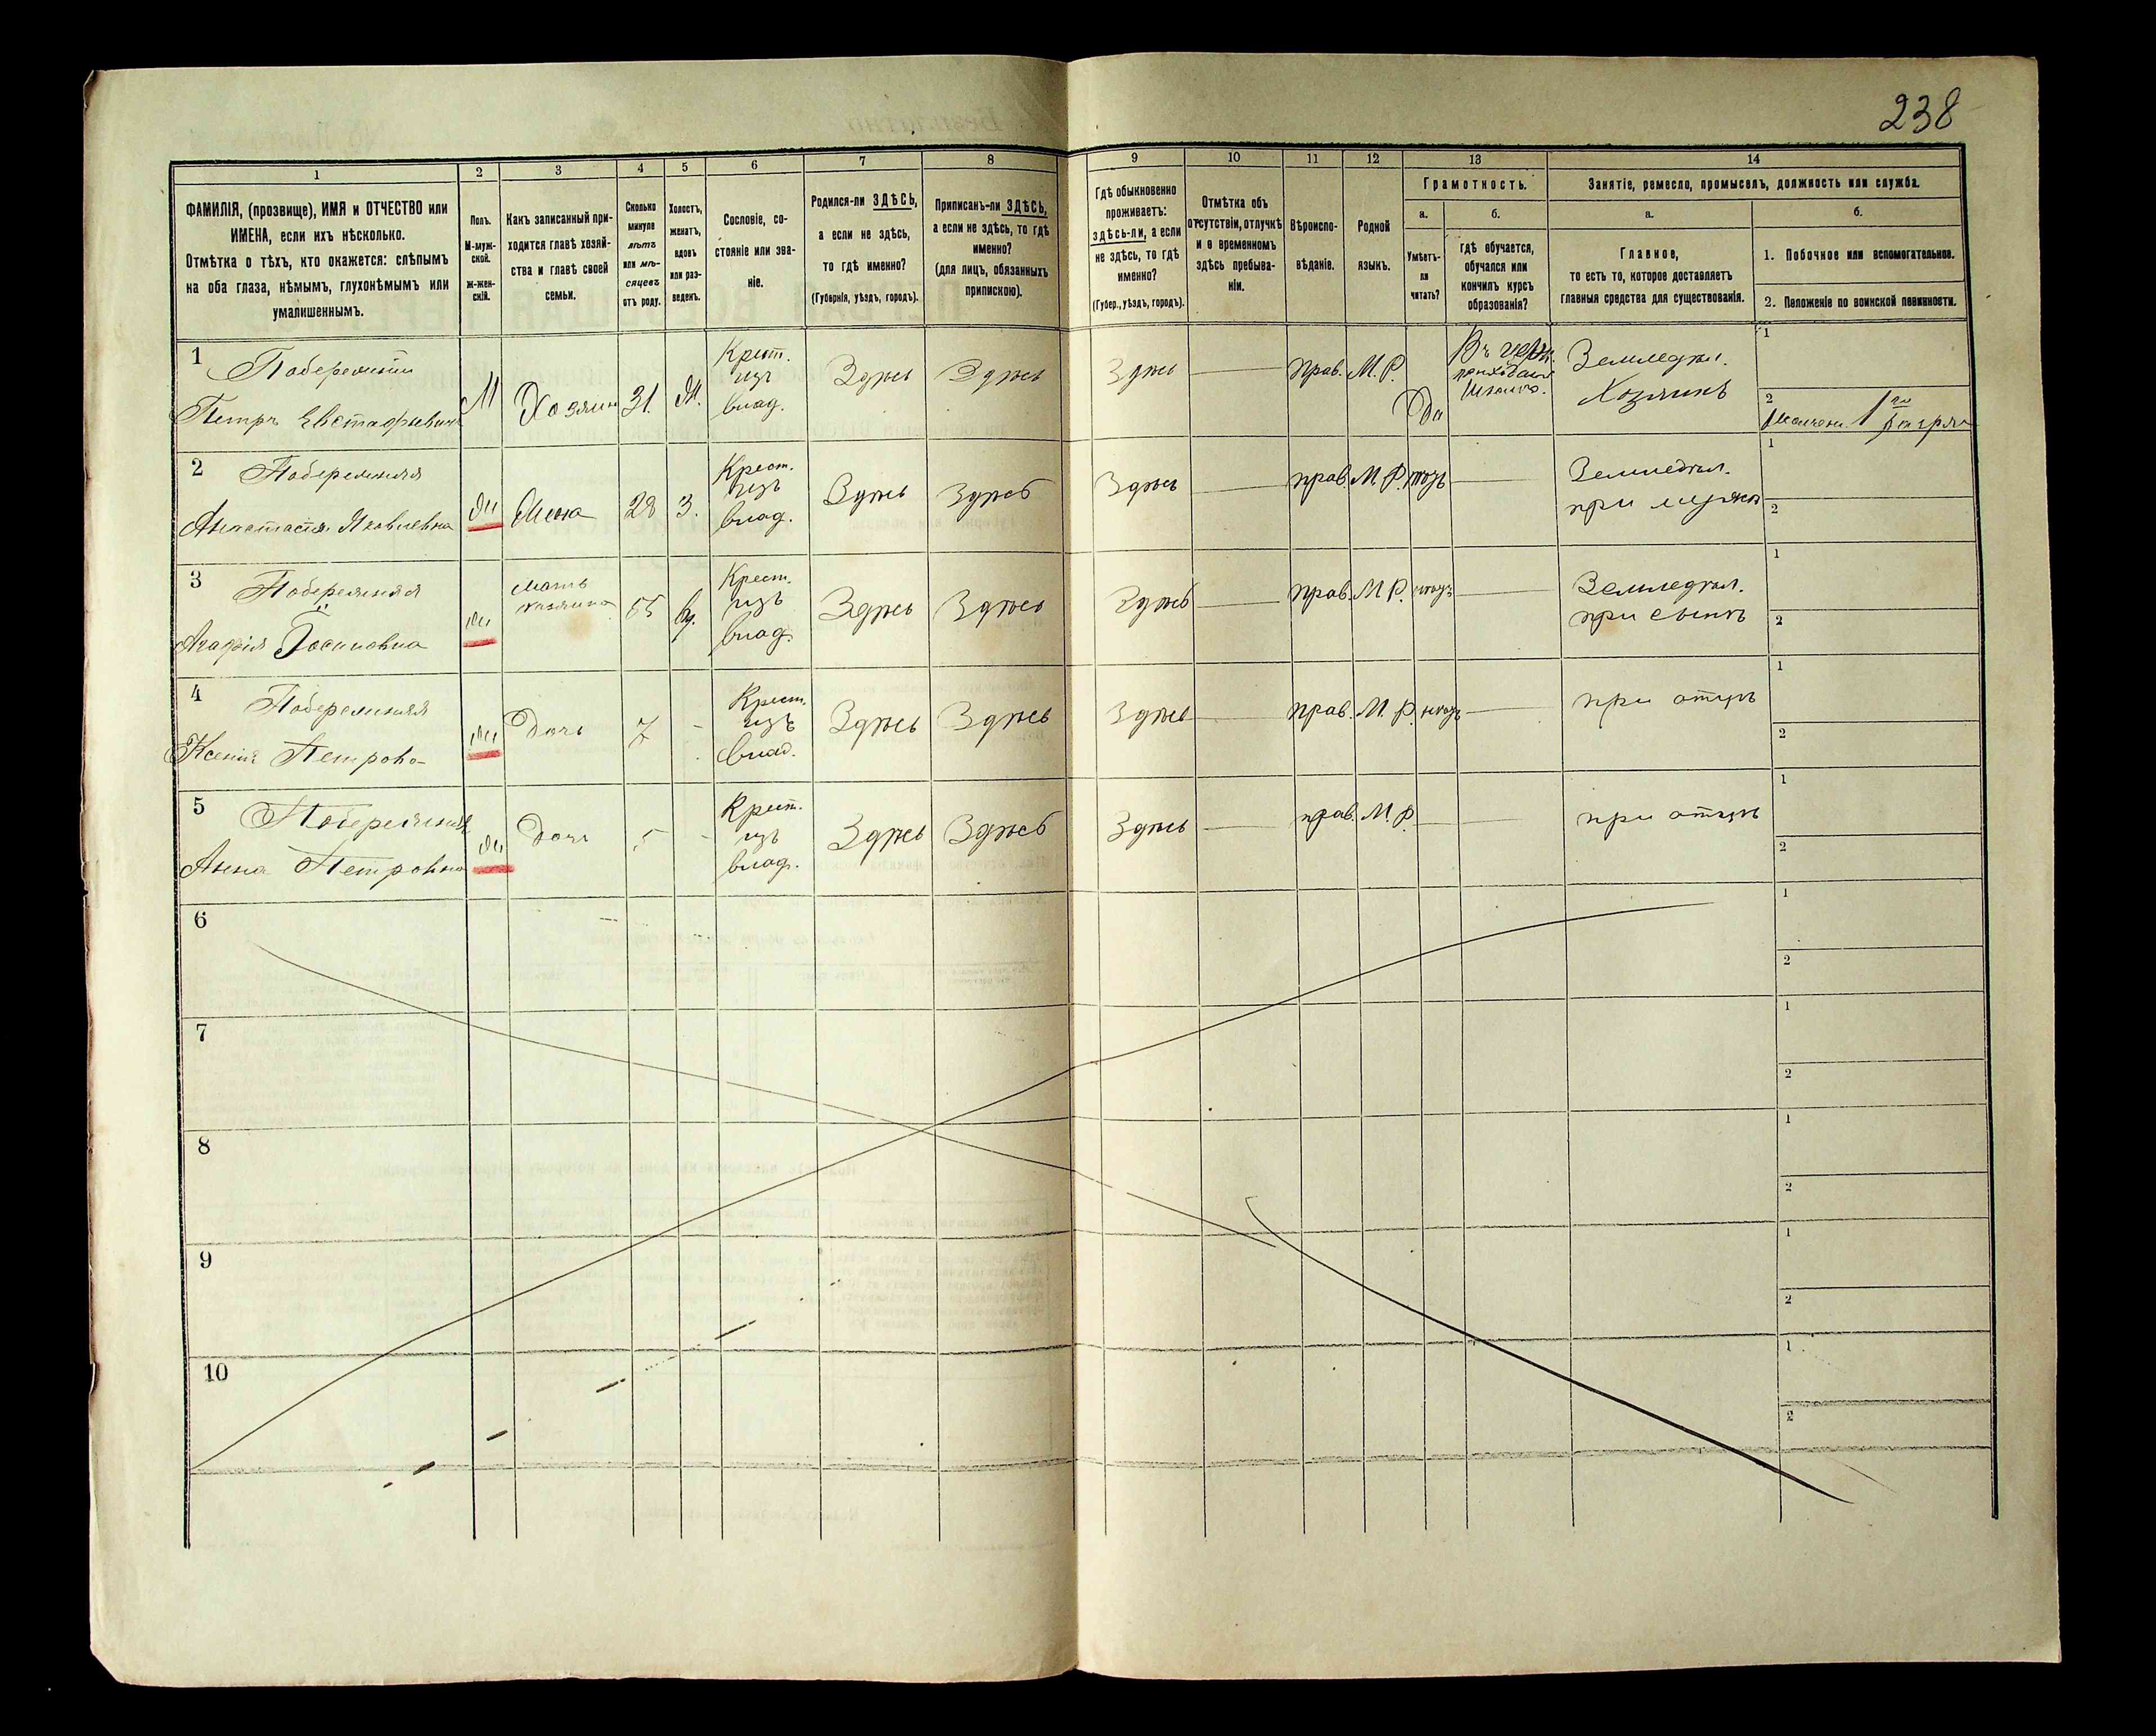 238
1
2
3
4
5
6
7
8
9
10
11
12
13
14
ФАМИЛІЯ, (прозвище), ИМЯ и ОТЧЕСТВО или
ИМЕНА, если ихъ нѣсколько.
Отмѣтка о тѣхъ, кто окажется: слѣпымъ
на оба глаза, нѣмымъ, глухонѣмымъ или
умалишеннымъ.
Полъ.
М-муж-
ской.
ж-жен-
скій.
Какъ записанный при-
ходится главѣ хозяй-
ства и главѣ своей
семьи.
Сколько
минуло
лѣтъ
или мѣ-
сяцевъ
отъ роду.
Холостъ,
женатъ,
вдовъ
или раз-
веденъ.
Сословіе, со-
стояніе или зва-
ніе.
Родился-ли ЗДѢСЬ,
а если не здѣсь,
то гдѣ именно?
(Губернія, уѣздъ, городъ).
Приписанъ-ли ЗДѢСЬ,
а если не здѣсь, то гдѣ
именно?
(для лицъ, обязанныхъ
припискою).
Гдѣ обыкновенно
проживаетъ:
здѣсь-ли, а если
не здѣсь, то гдѣ
именно?
(Губер., уѣздъ, городъ).
Отмѣтка объ
отсутствіи, отлучкѣ
и о временномъ
здѣсь пребыва-
ніи.
Вѣроиспо-
вѣданіе.
Родной
языкъ.
Грамотность.
а.
б.
Умѣетъ-
ли
читать?
гдѣ обучается,
обучался или
кончилъ курсъ
образованія?
Занятіе, ремесло, промыселъ, должность или служба.
а.
б.
Главное,
то есть то, которое доставляетъ
главныя средства для существованія.
1. Побочное или вспомогательное.
2. Положеніе по воинской повинности.
1
Побережній
Петръ Евстафьевичъ
М
Хозяинъ
31.
Ж.
Крест.
изъ
влад.
Здѣсь
Здѣсь
Здѣсь
Прав.
М.Р.
Да
Въ
Земледѣл.
Хозяинъ
1
2
2
Побережняя
Анастасія Яковлевна
ж
Жена
28
З.
Крест.
изъ
влад.
Здѣсь
Здѣсь
Здѣсь
прав.
М.Р.
Земледѣл.
при мужѣ
1
2
3
Побережняя
Агафія Іосиповна
ж
мать
хозяина
55
вд.
Крест.
изъ
влад.
Здѣсь
Здѣсь
Здѣсь
прав.
М.Р.
Земледѣл.
при сынѣ
1
2
4
Побережняя
Ксенія Петров-
ж
Дочь
7
-
Крест.
изъ
влад.
Здѣсь
Здѣсь
Здѣсь
прав.
М.Р.
при отцѣ
1
2
5
Побережняя
Анна Петровна
ж
Дочь
5
-
Крест.
изъ
влад.
Здѣсь
Здѣсь
Здѣсь
прав.
М.Р.
при отцѣ
1
2
6
1
2
7
1
2
8
1
2
9
1
2
10
1
2